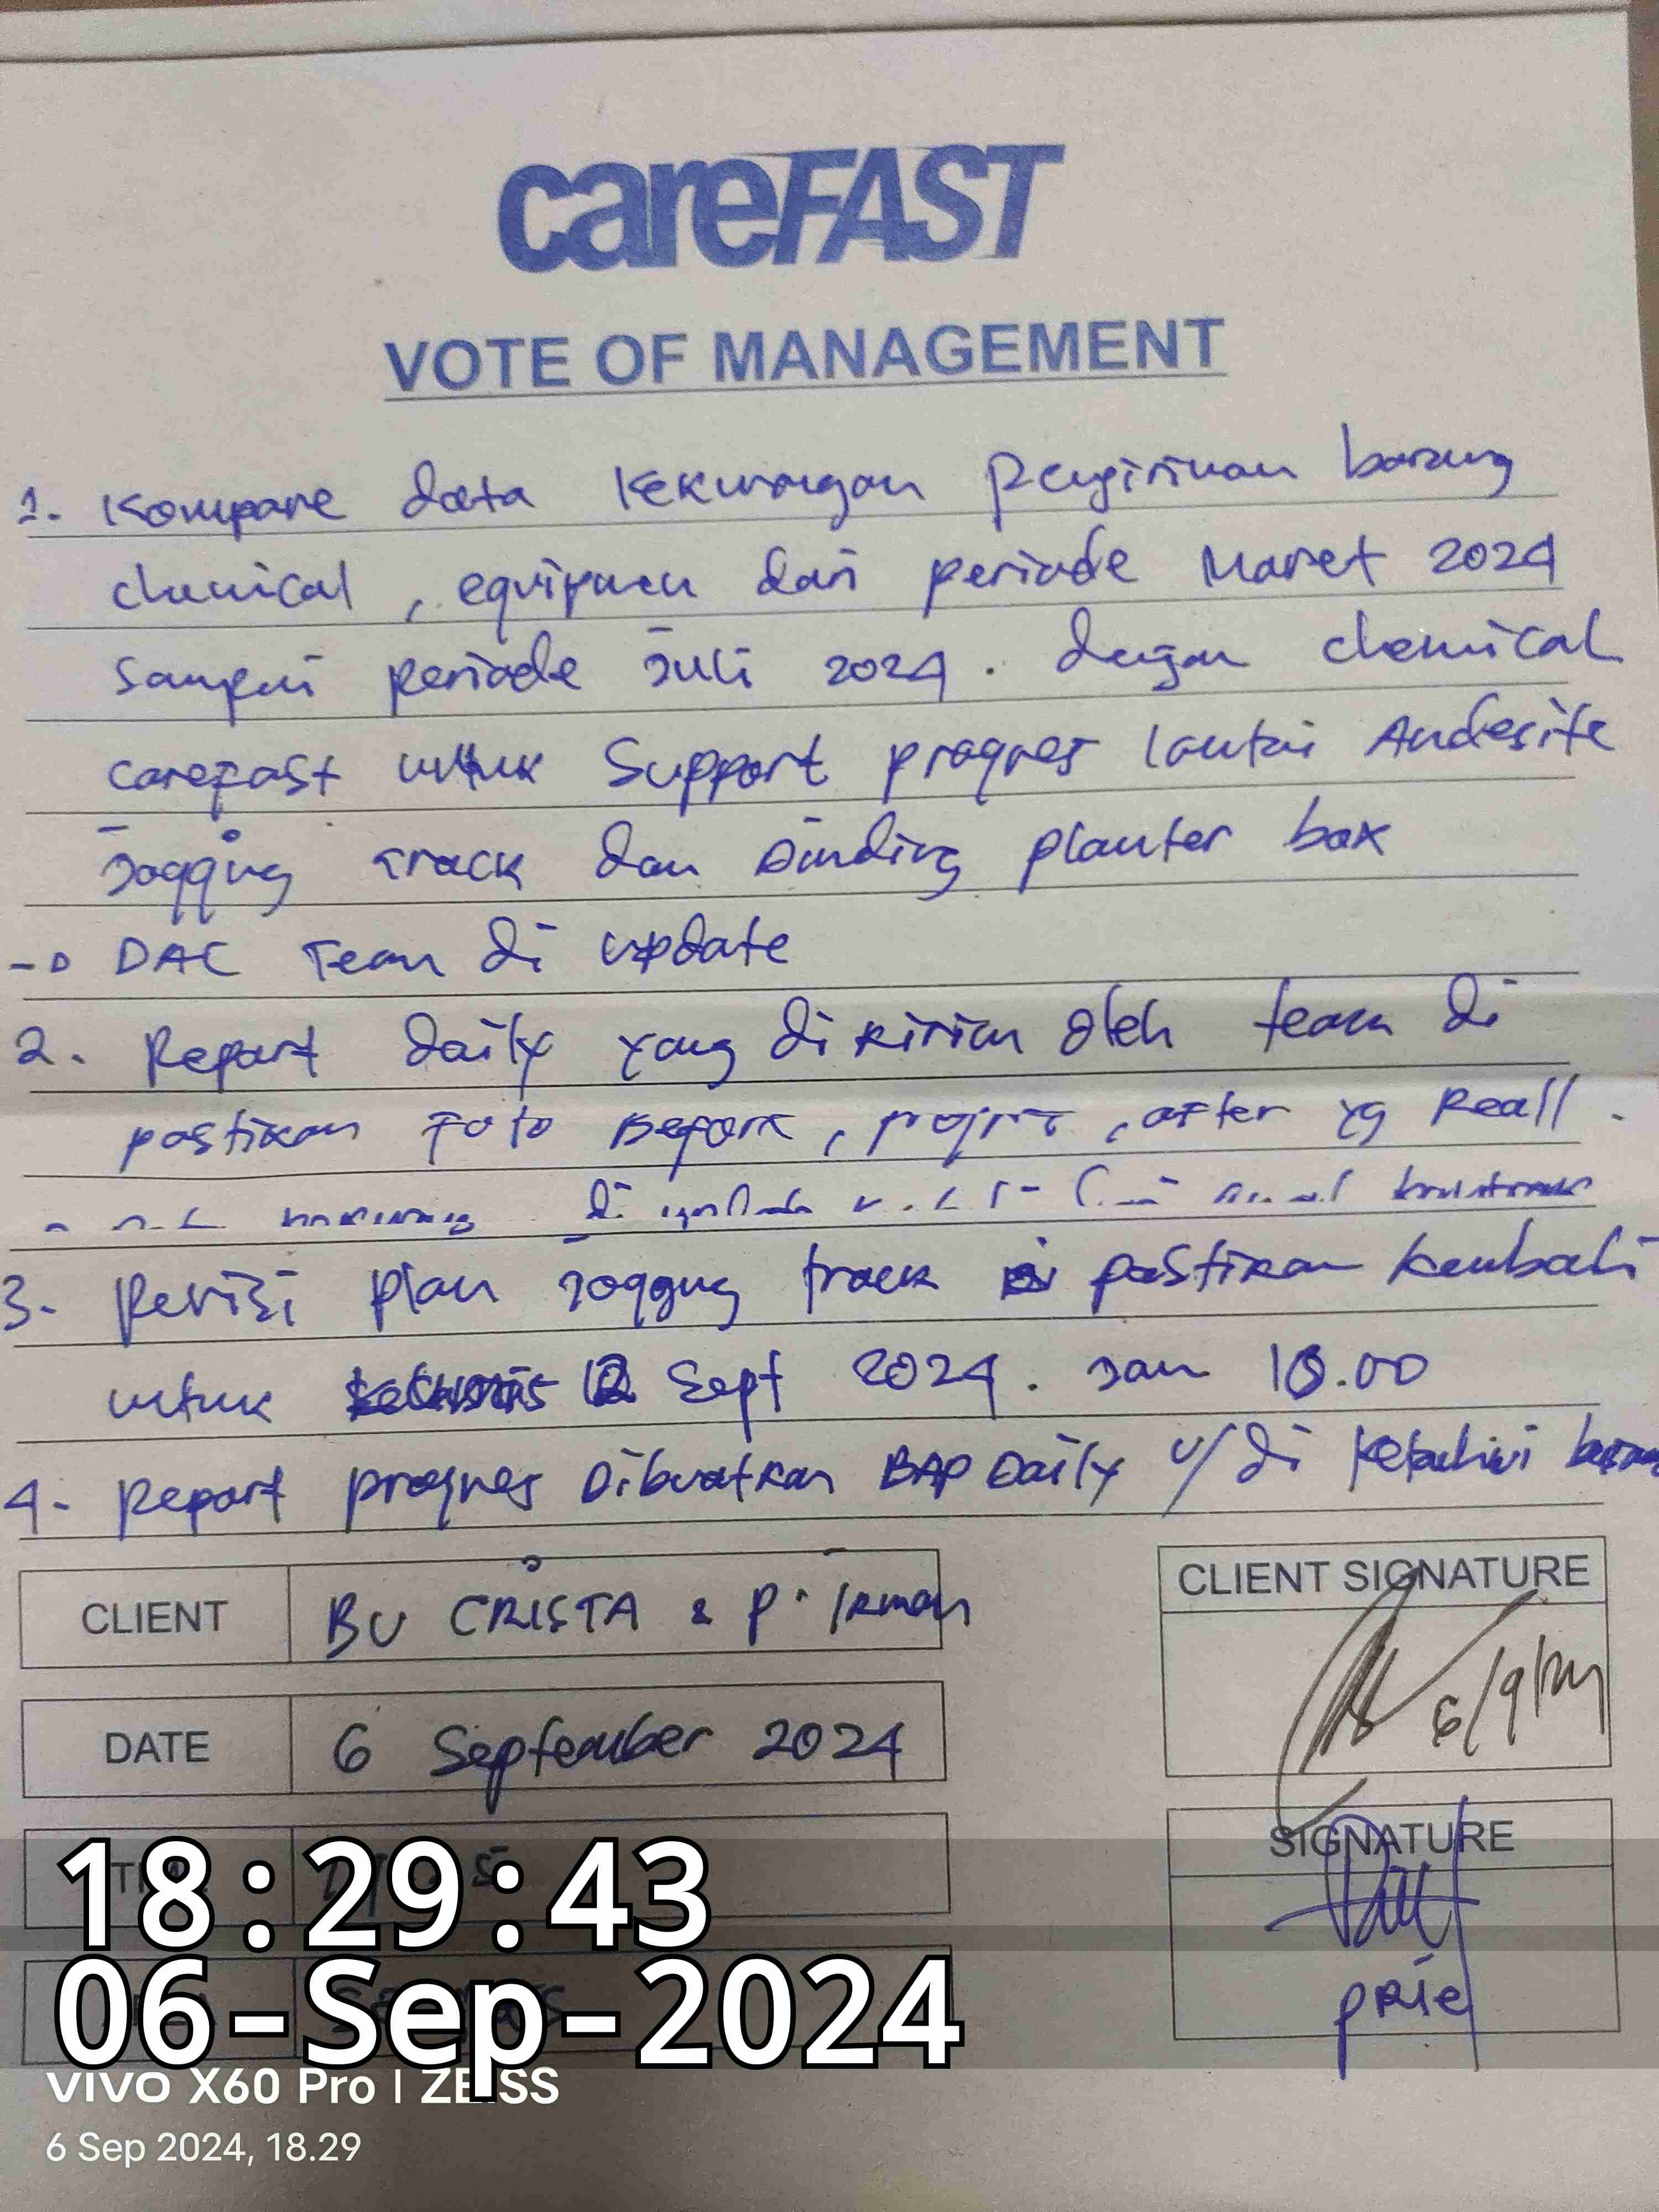 careFAST
VOTE OF MANAGEMENT
1. Kompare data kekurangan pengiriman barang
chemical, equipmen dari periode Maret 2024
sampai periode Juli 2024. dengan chemical
carefast untuk Support progres lantai Andesite
Jogging Track dan Dinding planter box
DAC Team di update
2. Report daily yang di kirim oleh team di
pastikan Foto Before, progres, after yg Reall.
di
3. Revisi plan jogging track pastikan kembali
untuk 12 Sept 2024. Jam
4. Report progres Dibuatkan BAP Daily u/ di ketahui
CLIENT
BU CRISTA & P. Irman
CLIENT SIGNATURE
6/9/24
DATE
6 September 2024
SIGNATURE
PRIE
18:29:43
06-Sep-2024
vivo X60 Pro | ZEISS
6 Sep 2024, 18.29